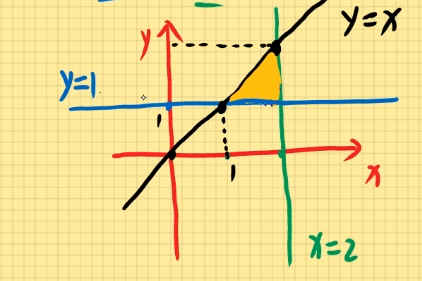 y
y=x
y=1
1
1
x
x=2